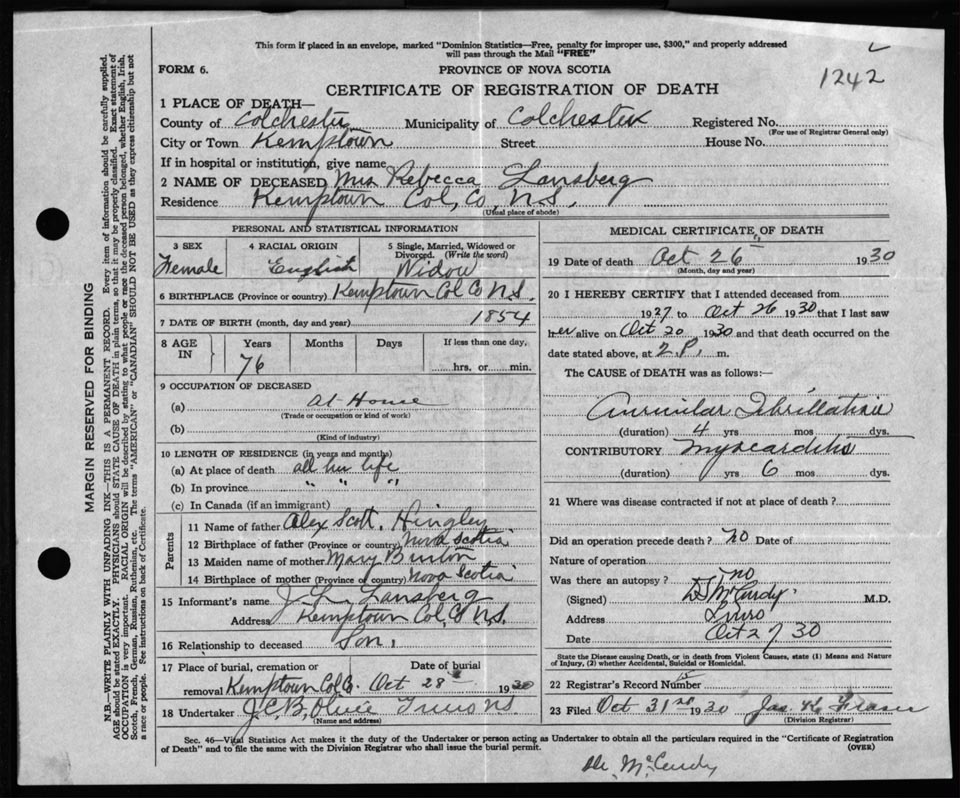 This form if placed in an envelope, marked "Dominion Statistics—Free, penalty for improper use, $300," and properly addressed
will pass through the Mail "FREE"
FORM 6.
PROVINCE OF NOVA SCOTIA
1242
CERTIFICATE OF REGISTRATION OF DEATH
1 PLACE OF DEATH—
County of Colchester Municipality of Colchester Registered No.
(For use of Registrar General only)
City or Town Kemptown Street House No.
If in hospital or institution, give name
2 NAME OF DECEASED Mrs Rebecca Lansberg
Residence Kemptown Col, Co, N.S.
(Usual place of abode)
PERSONAL AND STATISTICAL INFORMATION
3 SEX
Female
4 RACIAL ORIGIN
English
5 Single, Married, Widowed or
Divorced. (Write the word)
Widow
6 BIRTHPLACE (Province or country) Kemptown Col Co N.S.
7 DATE OF BIRTH (month, day and year) 1854
8 AGE
IN
Years
76
Months
Days
If less than one day,
hrs. or min.
9 OCCUPATION OF DECEASED
(a) At Home
(Trade or occupation or kind of work)
(b)
(Kind of industry)
10 LENGTH OF RESIDENCE (in years and months)
(a) At place of death all her life
(b) In province " " "
(c) In Canada (if an immigrant)
Parents
11 Name of father Alex Scott. Hingley
12 Birthplace of father (Province or country) Nova Scotia
13 Maiden name of mother Mary
14 Birthplace of mother (Province or country) Nova Scotia
15 Informant's name Lansberg
Address Kemptown Col, Co N.S.
16 Relationship to deceased Son,
17 Place of burial, cremation or
removal Kemptown Col. Co.
Date of burial
Oct 28 1930
18 Undertaker J.C.B. Olive Truro NS
(Name and address)
MEDICAL CERTIFICATE OF DEATH
19 Date of death Oct 26 " 1930
(Month, day and year)
20 I HEREBY CERTIFY that I attended deceased from
1927 to Oct 26 1930 that I last saw
her alive on Oct 20, 1930 and that death occurred on the
date stated above, at 2.P. m.
The CAUSE of DEATH was as follows:—
Auricular Fibrillation
(duration) 4 yrs mos dys.
CONTRIBUTORY Myocarditis
(duration) yrs 6 mos dys.
21 Where was disease contracted if not at place of death?
Did an operation precede death? no Date of
Nature of operation
Was there an autopsy? no
(Signed) McCurdy. M.D.
Address Truro
Date Oct 27 30
State the Disease causing Death, or in death from Violent Causes, state (1) Means and Nature
of Injury, (2) whether Accidental, Suicidal or Homicidal.
22 Registrar's Record Number 15
23 Filed Oct 31 1930 Jas. K Fraser
(Division Registrar)
Sec. 46—Vital Statistics Act makes it the duty of the Undertaker or person acting as Undertaker to obtain all the particulars required in the "Certificate of Registration
of Death" and to file the same with the Division Registrar who shall issue the burial permit.
(OVER)
Dr. McCurdy
MARGIN RESERVED FOR BINDING
N.B.—WRITE PLAINLY WITH UNFADING INK—THIS IS A PERMANENT RECORD. Every item of information should be carefully supplied.
AGE should be stated EXACTLY. PHYSICIANS should STATE CAUSE OF DEATH in plain terms, so that it may be properly classified. Exact statement of
OCCUPATION is very important. RACIAL ORIGIN will be described by stating to what people or race the deceased person belonged, whether English, Irish,
Scotch, French, German, Russian, Ruthenian, etc. The terms "AMERICAN" or "CANADIAN" SHOULD NOT BE USED as they express citizenship but not
a race or people. See instructions on back of Certificate.